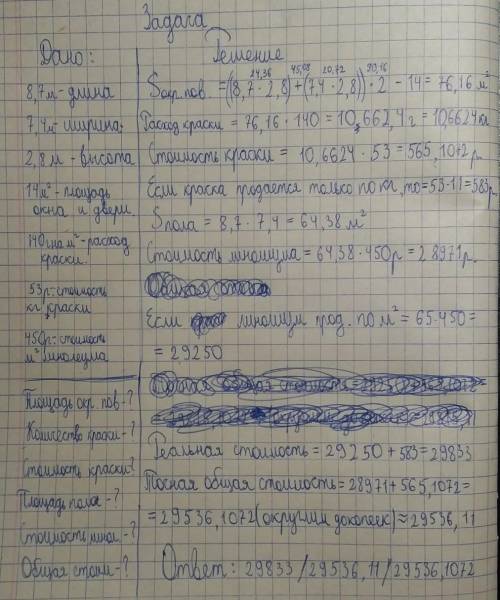 Задача
Дано:
8,7м - длина
7,4м - ширина
2,8м - высота
14м² - площадь
окна и двери
140г на м² - расход
краски
53р - стоимость
кг краски
450р - стоимость
м² линолеума
Площадь окр. пов - ?
Количество краски - ?
Стоимость краски?
Площадь пола - ?
Стоимость лино - ?
Общая стоим - ?
Решение
24,36 45,08 20,72 90,16
Sокр.пов. = ((8,7 · 2,8) + (7,4 · 2,8)) · 2 - 14 = 76,16 м²
Расход краски = 76,16 · 140 = 10 662,4 г = 10,6624 кг
Стоимость краски = 10,6624 · 53 = 565,1072 р.
Если краска продается только по кг, то = 53 · 11 = 583р
Sпола = 8,7 · 7,4 = 64,38 м²
Стоимость линолиума = 64,38 · 450р = 28971р.
Если линолиум прод. по м² = 65 · 450 =
= 29250
Реальная стоимость = 29250 + 583 = 29833
Точная общая стоимость = 28971 + 565,1072 =
= 29536,1072 (округлим до копеек) ≈ 29536,11
Ответ: 29833 / 29536,11 / 29536,1072